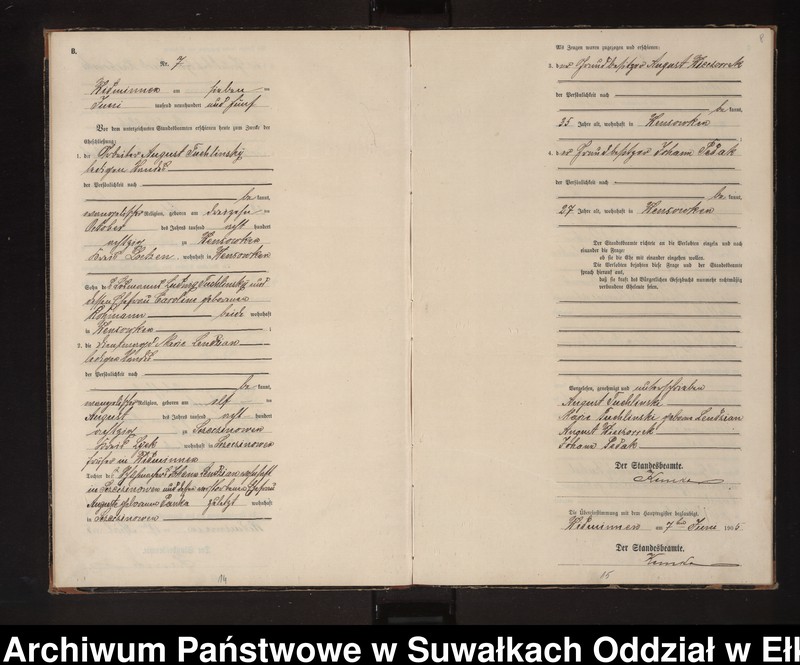 8.
Nr. 7
Widminnen am sieben ten
Juni tausend neunhundert und fünf
Vor dem unterzeichneten Standesbeamten erschienen heute zum Zwecke der
Eheschließung:
1. der Arbeiter August Tuchlinsky
ledigen Standes
der Persönlichkeit nach
be kannt,
evangelischer Religion, geboren am dreizehn ten
October des Jahres tausend acht hundert
achtzig zu Wensowken
Kreis Lötzen, wohnhaft in Wensowken
Sohn des Ludwig Tuchlinsky und
dessen Ehefrau Caroline geborenen
beide wohnhaft
in Wensowken
2. die Marie Lendzian
ledigen Standes
der Persönlichkeit nach
be kannt,
evangelischer Religion, geboren am elf ten
August des Jahres tausend acht hundert
achtzig zu
Kreis Lyck wohnhaft in
früher in Widminnen
Tochter des Johann Lendzian wohnhaft
in und dessen verstorbenen Ehefrau
Auguste geborenen Panka zuletzt wohnhaft
in
14
8
Als Zeugen waren zugezogen und erschienen:
3. der Grundbesitzer August Wieczorrek
der Persönlichkeit nach
be kannt,
35 Jahre alt, wohnhaft in Wensowken
4. der Grundbesitzer Johann Sedak
der Persönlichkeit nach
be kannt,
27 Jahre alt, wohnhaft in Wensowken
Der Standesbeamte richtete an die Verlobten einzeln und nach
einander die Frage:
ob sie die Ehe mit einander eingehen wollen.
Die Verlobten bejahten diese Frage und der Standesbeamte
sprach hierauf aus,
daß sie kraft des Bürgerlichen Gesetzbuchs nunmehr rechtmäßig
verbundene Eheleute seien.
Vorgelesen, genehmigt und unterschrieben
August Tuchlinski
Marie Tuchlinski geborene Lendzian
August Wieczorrek
Johann Sedak
Der Standesbeamte.
Die Übereinstimmung mit dem Hauptregister beglaubigt.
Widminnen am 7ten Juni 1905
Der Standesbeamte.
15
Archiwum Państwowe w Suwałkach Oddział w Ełk